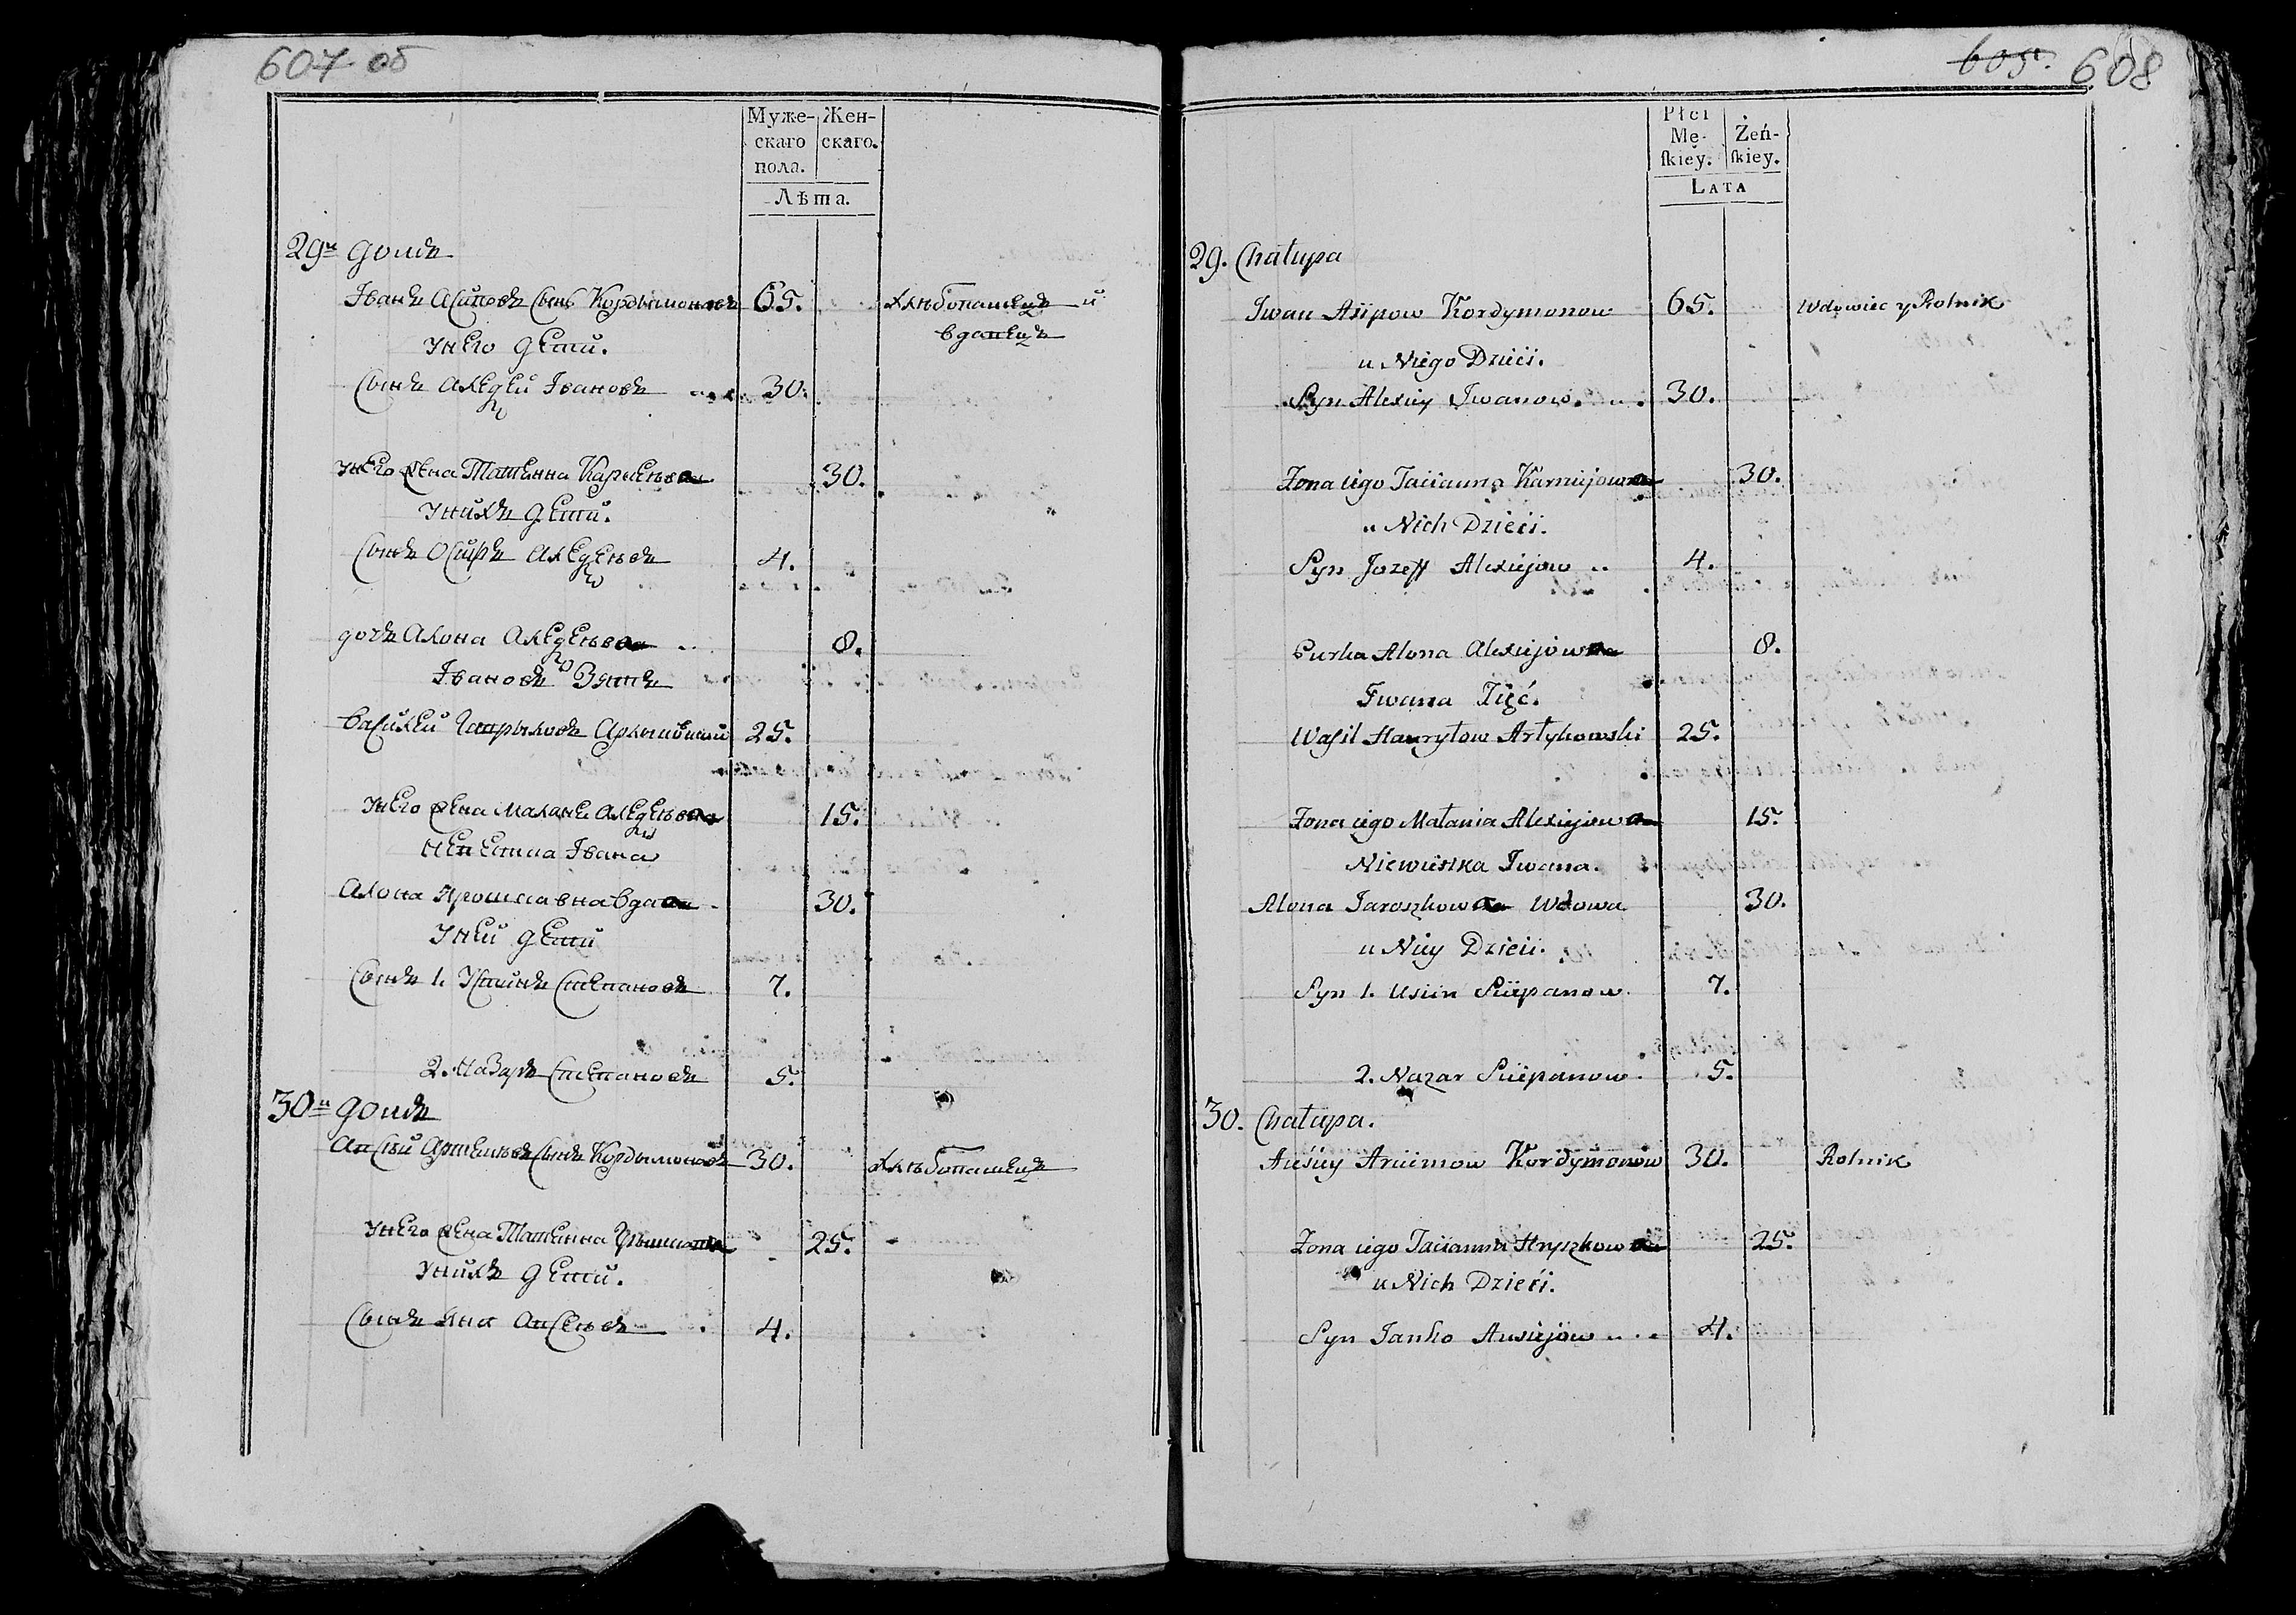 607 об
Муже- Жен-
скаго скаго.
пола.
Лѣта.
29й Домъ
Іванъ Асиповъ Сынъ Кордымоновъ 65. Хлѣбопашецъ и
вдовецъ
у него дети.
Сынъ Алеѯей Івановъ 30.
у него жена Татіянна Карнеева 30.
у нихъ дети.
Сынъ Осифъ Алеѯеевъ 4.
дочъ Алона Алеѯеева 8.
Івановъ Зять
Василей Гаврыловъ Артыковский 25.
у него жена Малане Алеѯеева 15.
Невестка Івана
Алона вдова 30.
у ней дети
Сынъ 1. Устинъ Степановъ 7.
2. Назаръ Степановъ 5.
30й Домъ
Авсей Артемьевъ Сынъ Кордымоновъ 30. Хлѣбопашецъ
у него жена Татіянна 25.
у нихъ дети.
Сынъ Янка Авсеевъ 4.
605. 608
Płci
Mę- Żeń-
ſkiey. ſkiey.
LATA
29. Chałupa
Iwan Asipow Kordymonow 65. Wdowiec y Rolnik
u Niego Dzieci.
Syn Alexiey Iwanow. 30.
Zona iego Tacianna Karniejowa 30.
u Nich Dzieci.
Syn Jozeff Alexiejow 4.
Curka Alona Alexiejowa 8.
Iwana Zięć.
Waſil Hawryłow Artykowski 25.
Zona iego Małania Alexiejowa 15.
Niewiestka Iwana.
Alona Jaroszkowa Wdowa 30.
u Niey Dzieci.
Syn 1. Uscin Sciepanow 7.
2. Nazar Sciepanow. 5.
30. Chałupa.
Auśiey Arciemow Kordymonow 30. Rolnik
Zona iego Tacianna Hryszkowa 25.
u Nich Dzieci.
Syn Janko Ausiejow 4.